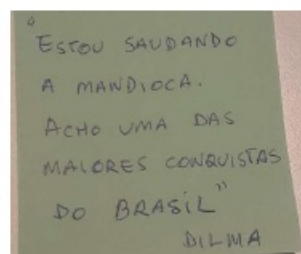 "ESTOU SAUDANDO
A MANDIOCA.
ACHO UMA DAS
MAIORES CONQUISTAS
DO BRASIL"
DILMA